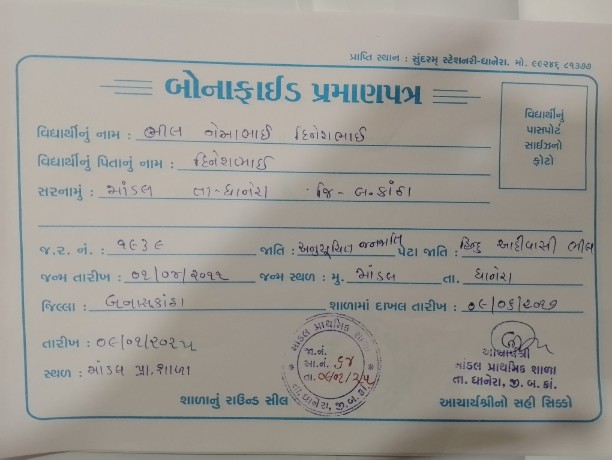 પ્રાપ્તિ સ્થાન : સુંદરમ્ સ્ટેશનરી-ધાનેરા. મો. ૯૯૨૪૬ ૮૧૩૭૭
બોનાફાઈડ પ્રમાણપત્ર
વિદ્યાર્થીનું
પાસપોર્ટ
સાઈઝનો
ફોટો
વિદ્યાર્થીનું નામ : ભીલ નેમાભાઈ દિનેશભાઈ
વિદ્યાર્થીનું પિતાનું નામ : દિનેશભાઈ
સરનામું : માંડલ તા-ધાનેરા જિ-બ.કાંઠા
જ.ર. નં. : ૧૯૩૯ જાતિ : અનુસૂચિત જનજાતિ પેટા જાતિ : હિન્દુ આદીવાસી ભીલ
જન્મ તારીખ : ૦૧/૦૪/૨૦૧૧ જન્મ સ્થળ : મુ. માંડલ તા. ધાનેરા
જિલ્લા : બનાસકાંઠા શાળામાં દાખલ તારીખ : ૦૯/૦૬/૨૦૧૭
તારીખ : ૦૯/૦૧/૨૦૨૫
સ્થળ : માંડલ પ્રા. શાળા
માંડલ પ્રાથમિક શાળા
જા.નં.
આ.નં. ૬૪
તા. ૦૯/૧/૨૫
તા.ધાનેરા, જી.બ.કાં.
આચાર્યશ્રી
માંડલ પ્રાથમિક શાળા
તા. ધાનેરા, જી. બ. કાં.
શાળાનું રાઉન્ડ સીલ આચાર્યશ્રીનો સહી સિક્કો